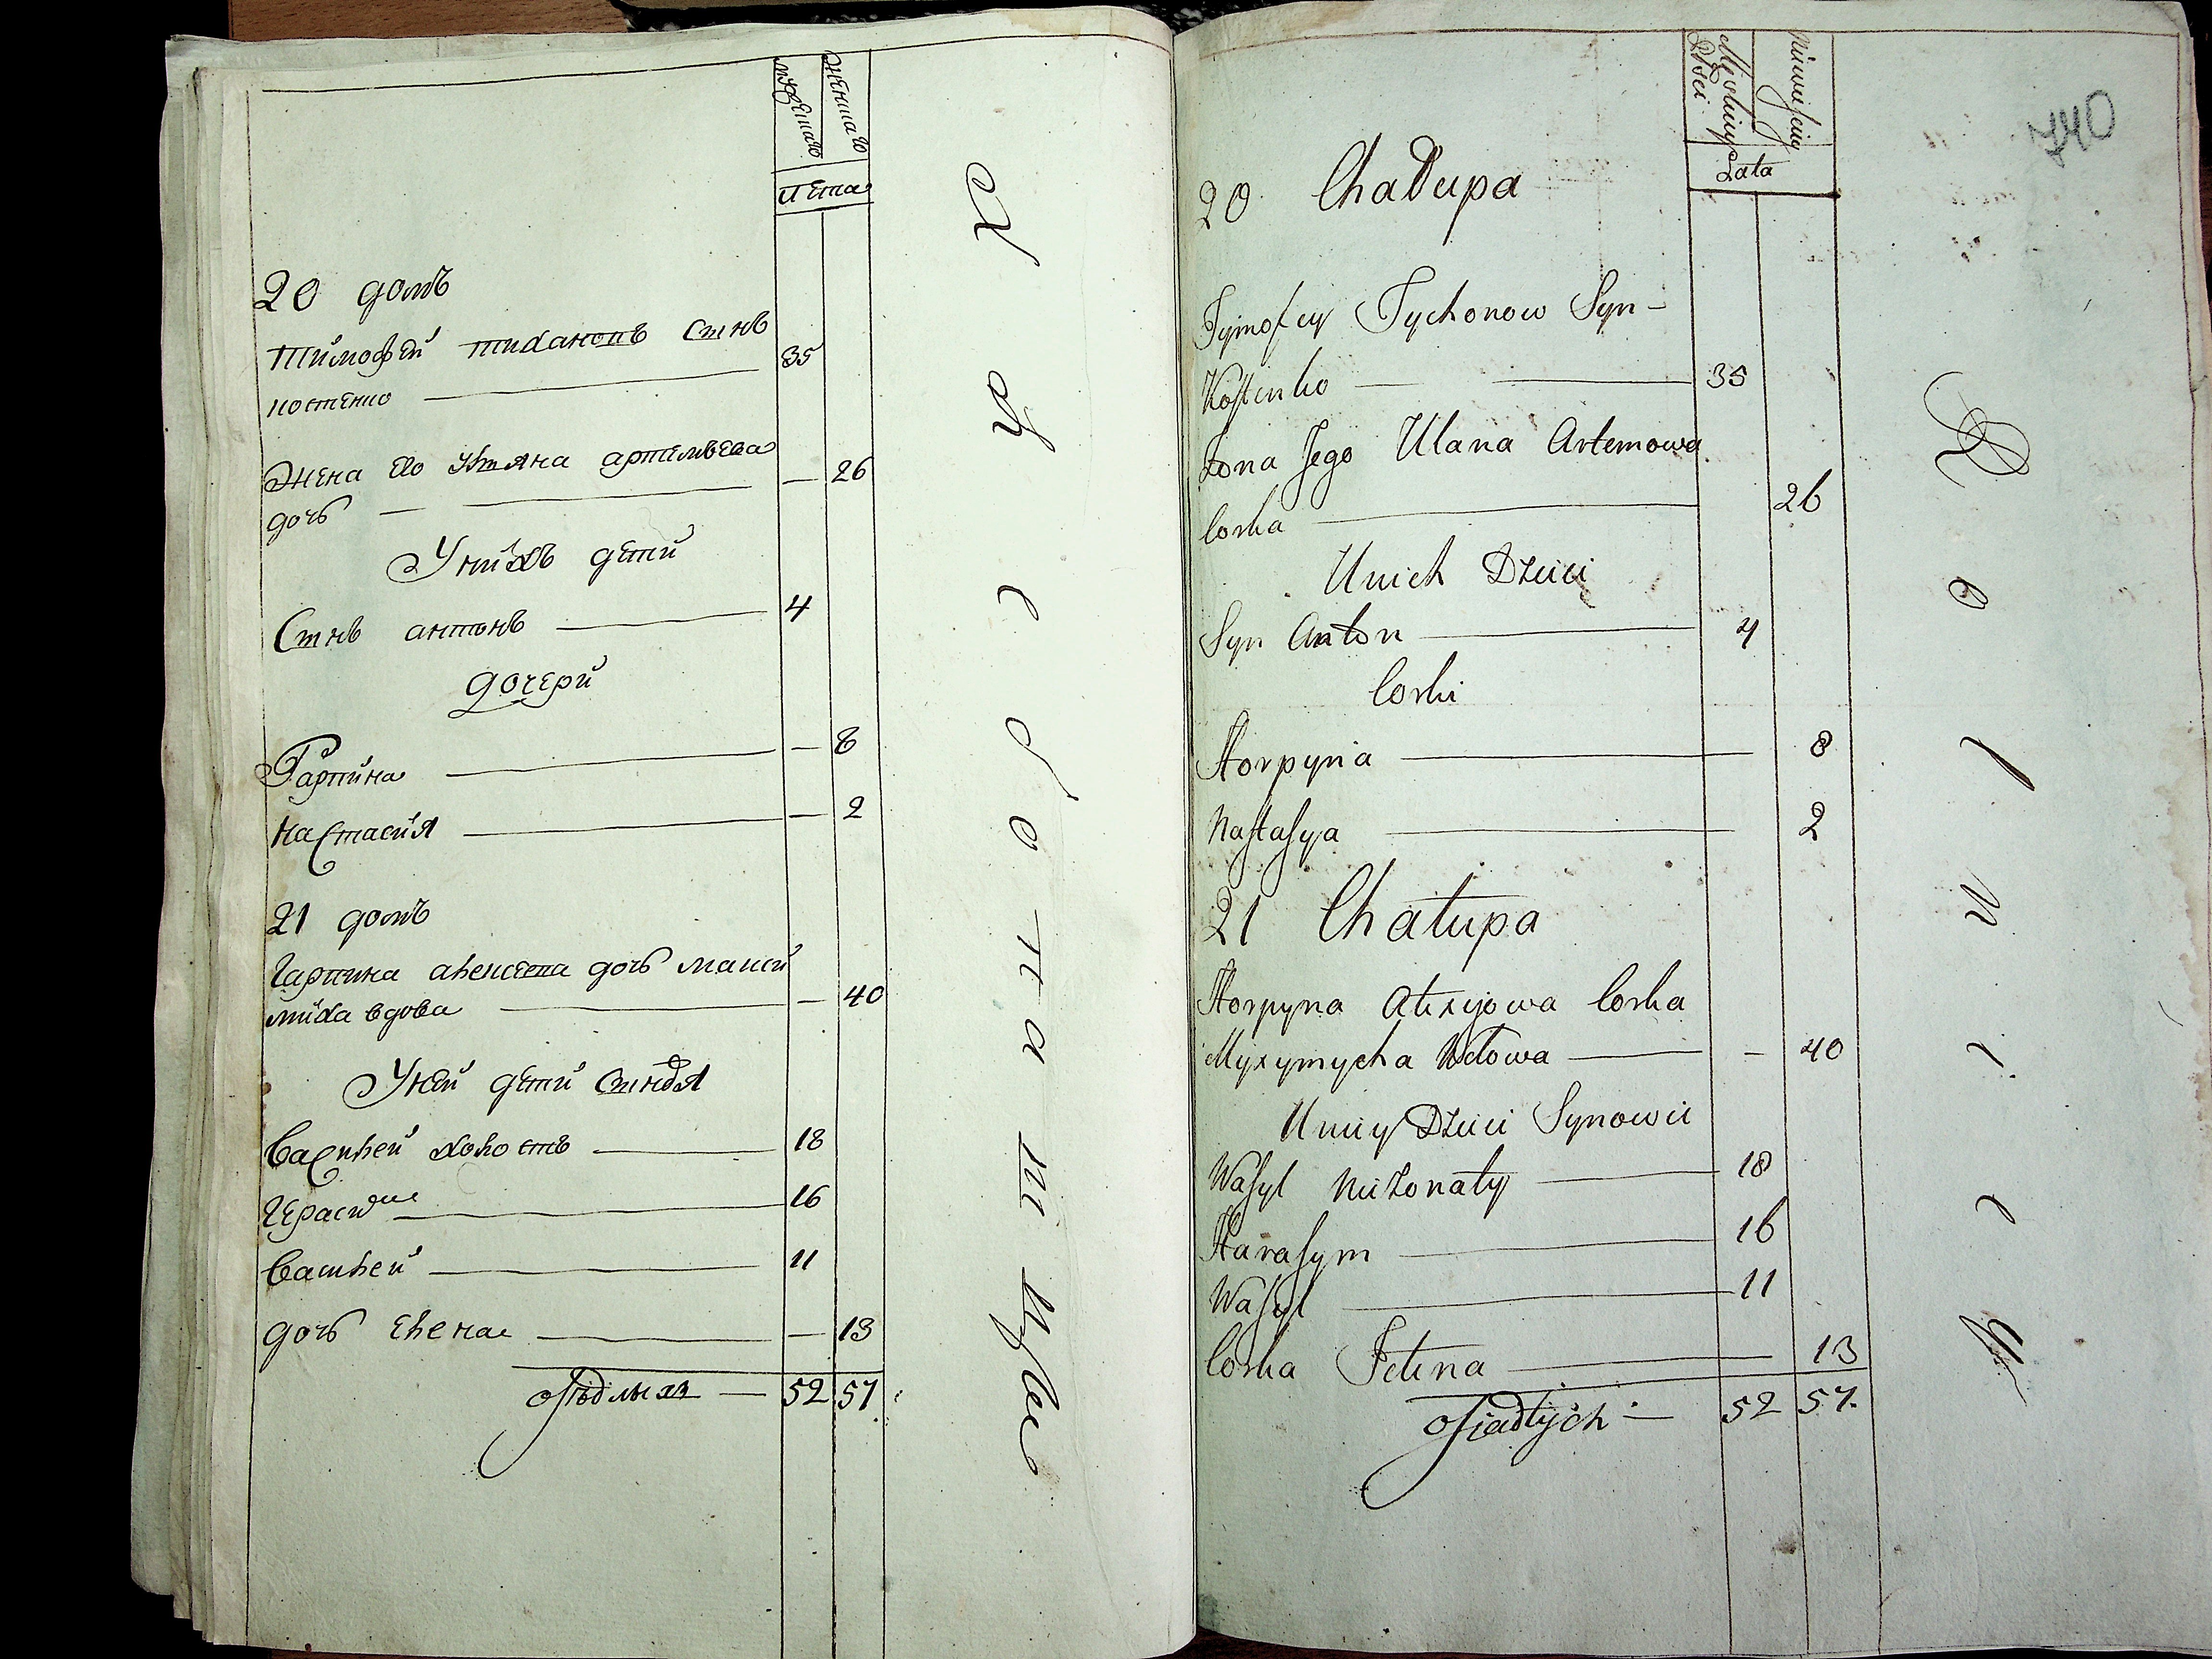 мужеска
женска
лѣта
20 домъ
тимофей тихановъ сынъ
костенко 35
жена его уляна артемьева
дочь 26
У нихъ дети
Сынъ антонъ 4
дочери
Гарпина 8
настасия 2
21 домъ
Гарпина алексеева дочь макси
миха вдова 40
У ней дети сыновя
Василей холостъ 18
Герасим 16
Василей 11
дочь елена 13
52 57
740
Lata
20 Chałupa
Tymofey Tychonow Syn
Kostenko 35
Zona Jego Ulana Artemowa
Corka 26
U nich Dzieci
Syn Anton 4
Corki
Horpyna 8
Nastasya 2
21 Chałupa
Horpyna Alexijowa Corka
Myxymycha Wdowa 40
U niey Dzieci Synowie
Wasyl nieżonaty 18
Harasym 16
Wasyl 11
Corka Jelena 13
osiadłych 52 57.